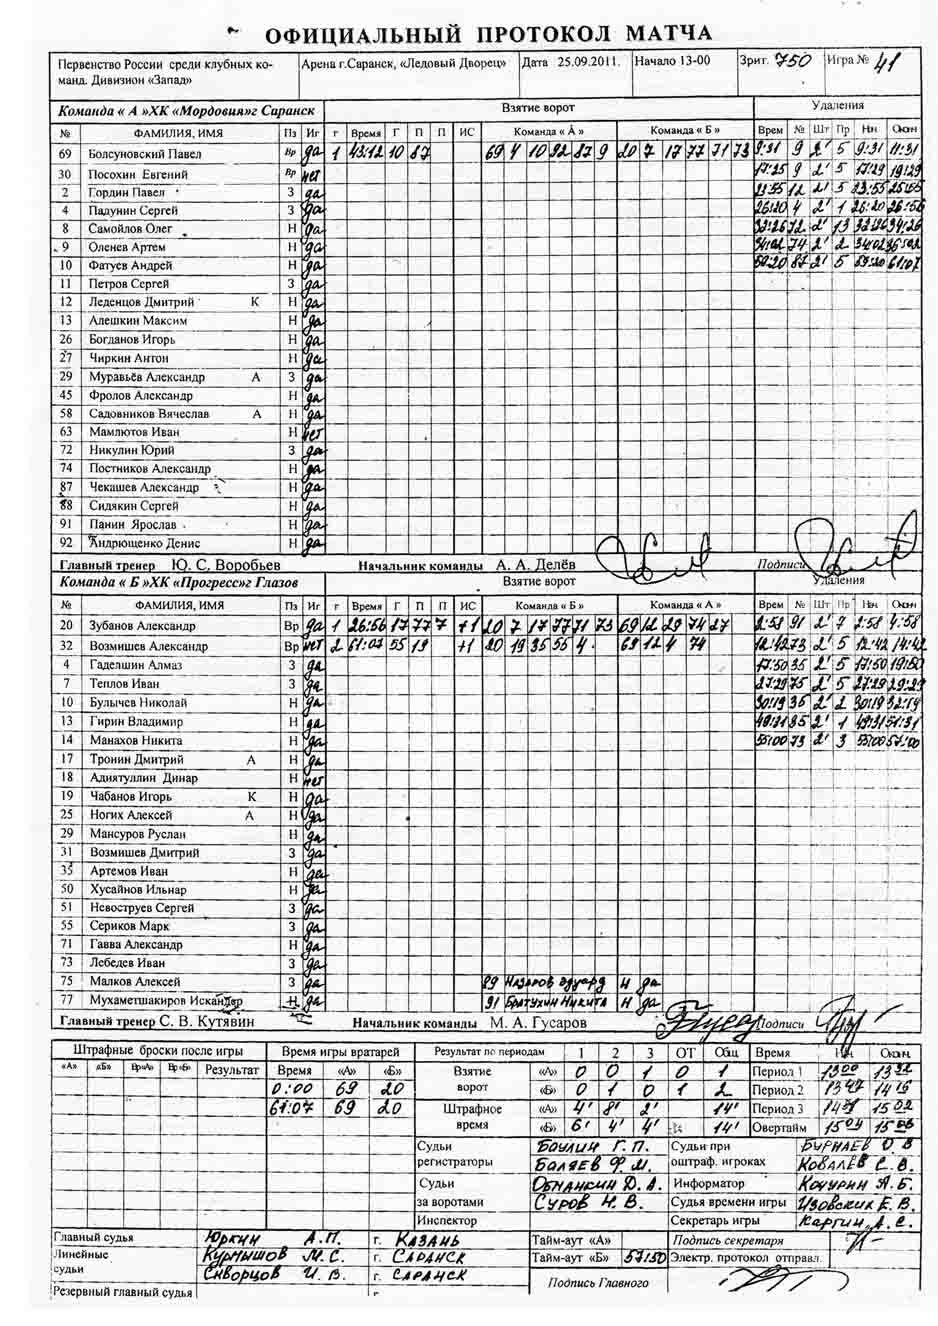 ОФИЦИАЛЬНЫЙ ПРОТОКОЛ МАТЧА
Первенство России среди клубных команд. Дивизион «Запад» Арена г.Саранск, «Ледовый Дворец» Дата 25.09.2011. Начало 13-00 Зрит. 750 Игра № 41
Команда « А »ХК «Мордовия»г Саранск Взятие ворот Удаления
№ ФАМИЛИЯ, ИМЯ Пз Иг г Время Г П П ИС Команда « А » Команда « Б » Врем № Шт Пр Нач Оконч
69 Болсуновский Павел Вр да 1 43:12 10 87 69 4 10 92 87 9 20 7 17 77 71 73 9:31 9 2' 5 9:31 11:31
30 Посохин Евгений Вр нет 9 2' 5 17:29 19:29
2 Гордин Павел З да 12 2' 5 23:55 25:55
4 Падунин Сергей З да 26:20 4 2' 1 26:20
8 Самойлов Олег З да 72 2' 13 34:26
9 Оленев Артем З да 34:02 74 2' 2 34:02
10 Фатуев Андрей Н да 59:20 87 2' 5 59:20 61:07
11 Петров Сергей З да
12 Леденцов Дмитрий К Н да
13 Алешкин Максим Н да
26 Богданов Игорь Н да
27 Чиркин Антон Н да
29 Муравьёв Александр А З да
45 Фролов Александр Н да
58 Садовников Вячеслав А Н да
63 Мамлютов Иван Н нет
72 Никулин Юрий З да
74 Постников Александр Н да
87 Чекашев Александр Н да
88 Сидякин Сергей Н да
91 Панин Ярослав Н да
92 Андрющенко Денис Н да
Главный тренер Ю. С. Воробьев Начальник команды А. А. Делёв Подписи
Команда « Б »ХК «Прогресс»г Глазов Взятие ворот Удаления
№ ФАМИЛИЯ, ИМЯ Пз Иг г Время Г П П ИС Команда « Б » Команда « А » Врем № Шт Пр Нач Оконч
20 Зубанов Александр Вр да 1 26:56 17 77 7 +1 20 7 17 77 71 73 69 12 29 74 27 2:58 91 2' 7 2:58 4:58
32 Возмишев Александр Вр нет 2 61:07 55 19 +1 20 19 35 55 4 69 12 4 74 12:42 73 2' 5 12:42 14:42
4 Гаделшин Алмаз З да 17:50 35 2' 5 17:50 19:50
7 Теплов Иван З да 27:29 75 2' 5 27:29 29:29
10 Булычев Николай Н да 30:19 35 2' 2 30:19 32:19
13 Гирин Владимир Н да 49:31 35 2' 1 49:31 51:31
14 Манахов Никита Н да 55:00 73 2' 3 55:00 57:00
17 Тронин Дмитрий А Н да
18 Адиятуллин Динар Н нет
19 Чабанов Игорь К Н да
25 Ногих Алексей А Н да
29 Мансуров Руслан Н да
31 Возмишев Дмитрий З да
35 Артемов Иван Н да
50 Хусайнов Ильнар Н да
51 Невоструев Сергей З да
55 Сериков Марк З да
71 Гавва Александр Н да
73 Лебедев Иван З да
75 Малков Алексей З да 89 Назаров Эдуард Н да
77 Мухаметшакиров Искандер Н да 91 Братухин Никита Н да
Главный тренер С. В. Кутявин Начальник команды М. А. Гусаров Подписи
Штрафные броски после игры Время игры вратарей Результат по периодам 1 2 3 ОТ Общ Время Нач. Оконч.
«А» «Б» Вр«А» Вр«Б» Результат Время «А» «Б» Взятие ворот «А» 0 0 1 0 1 Период 1 13 00 13 32
0:00 69 20 «Б» 0 1 0 1 2 Период 2 13 47 14 16
61:07 69 20 Штрафное время «А» 4' 8' 2' 14' Период 3 15 02
«Б» 6' 4' 4' 14' Овертайм 15 04 15 06
Судьи регистраторы Баулин Г. П. Судьи при оштраф. игроках Бурнаев О. В
Баляев Ф. М. Ковалёв С. В.
Судьи за воротами Обманкин Д. А. Информатор Кочурин А. Б.
Суров Н. В. Судья времени игры Изовских Е. В.
Инспектор Секретарь игры Каргин А. С.
Главный судья Юркин А. П. г. Казань Тайм-аут «А» Подпись секретаря
Линейные судьи Курмышов М. С. г. Саранск Тайм-аут «Б» 57:50 Электр. протокол отправл.
Скворцов И. В. г. Саранск Подпись Главного
Резервный главный судья г.